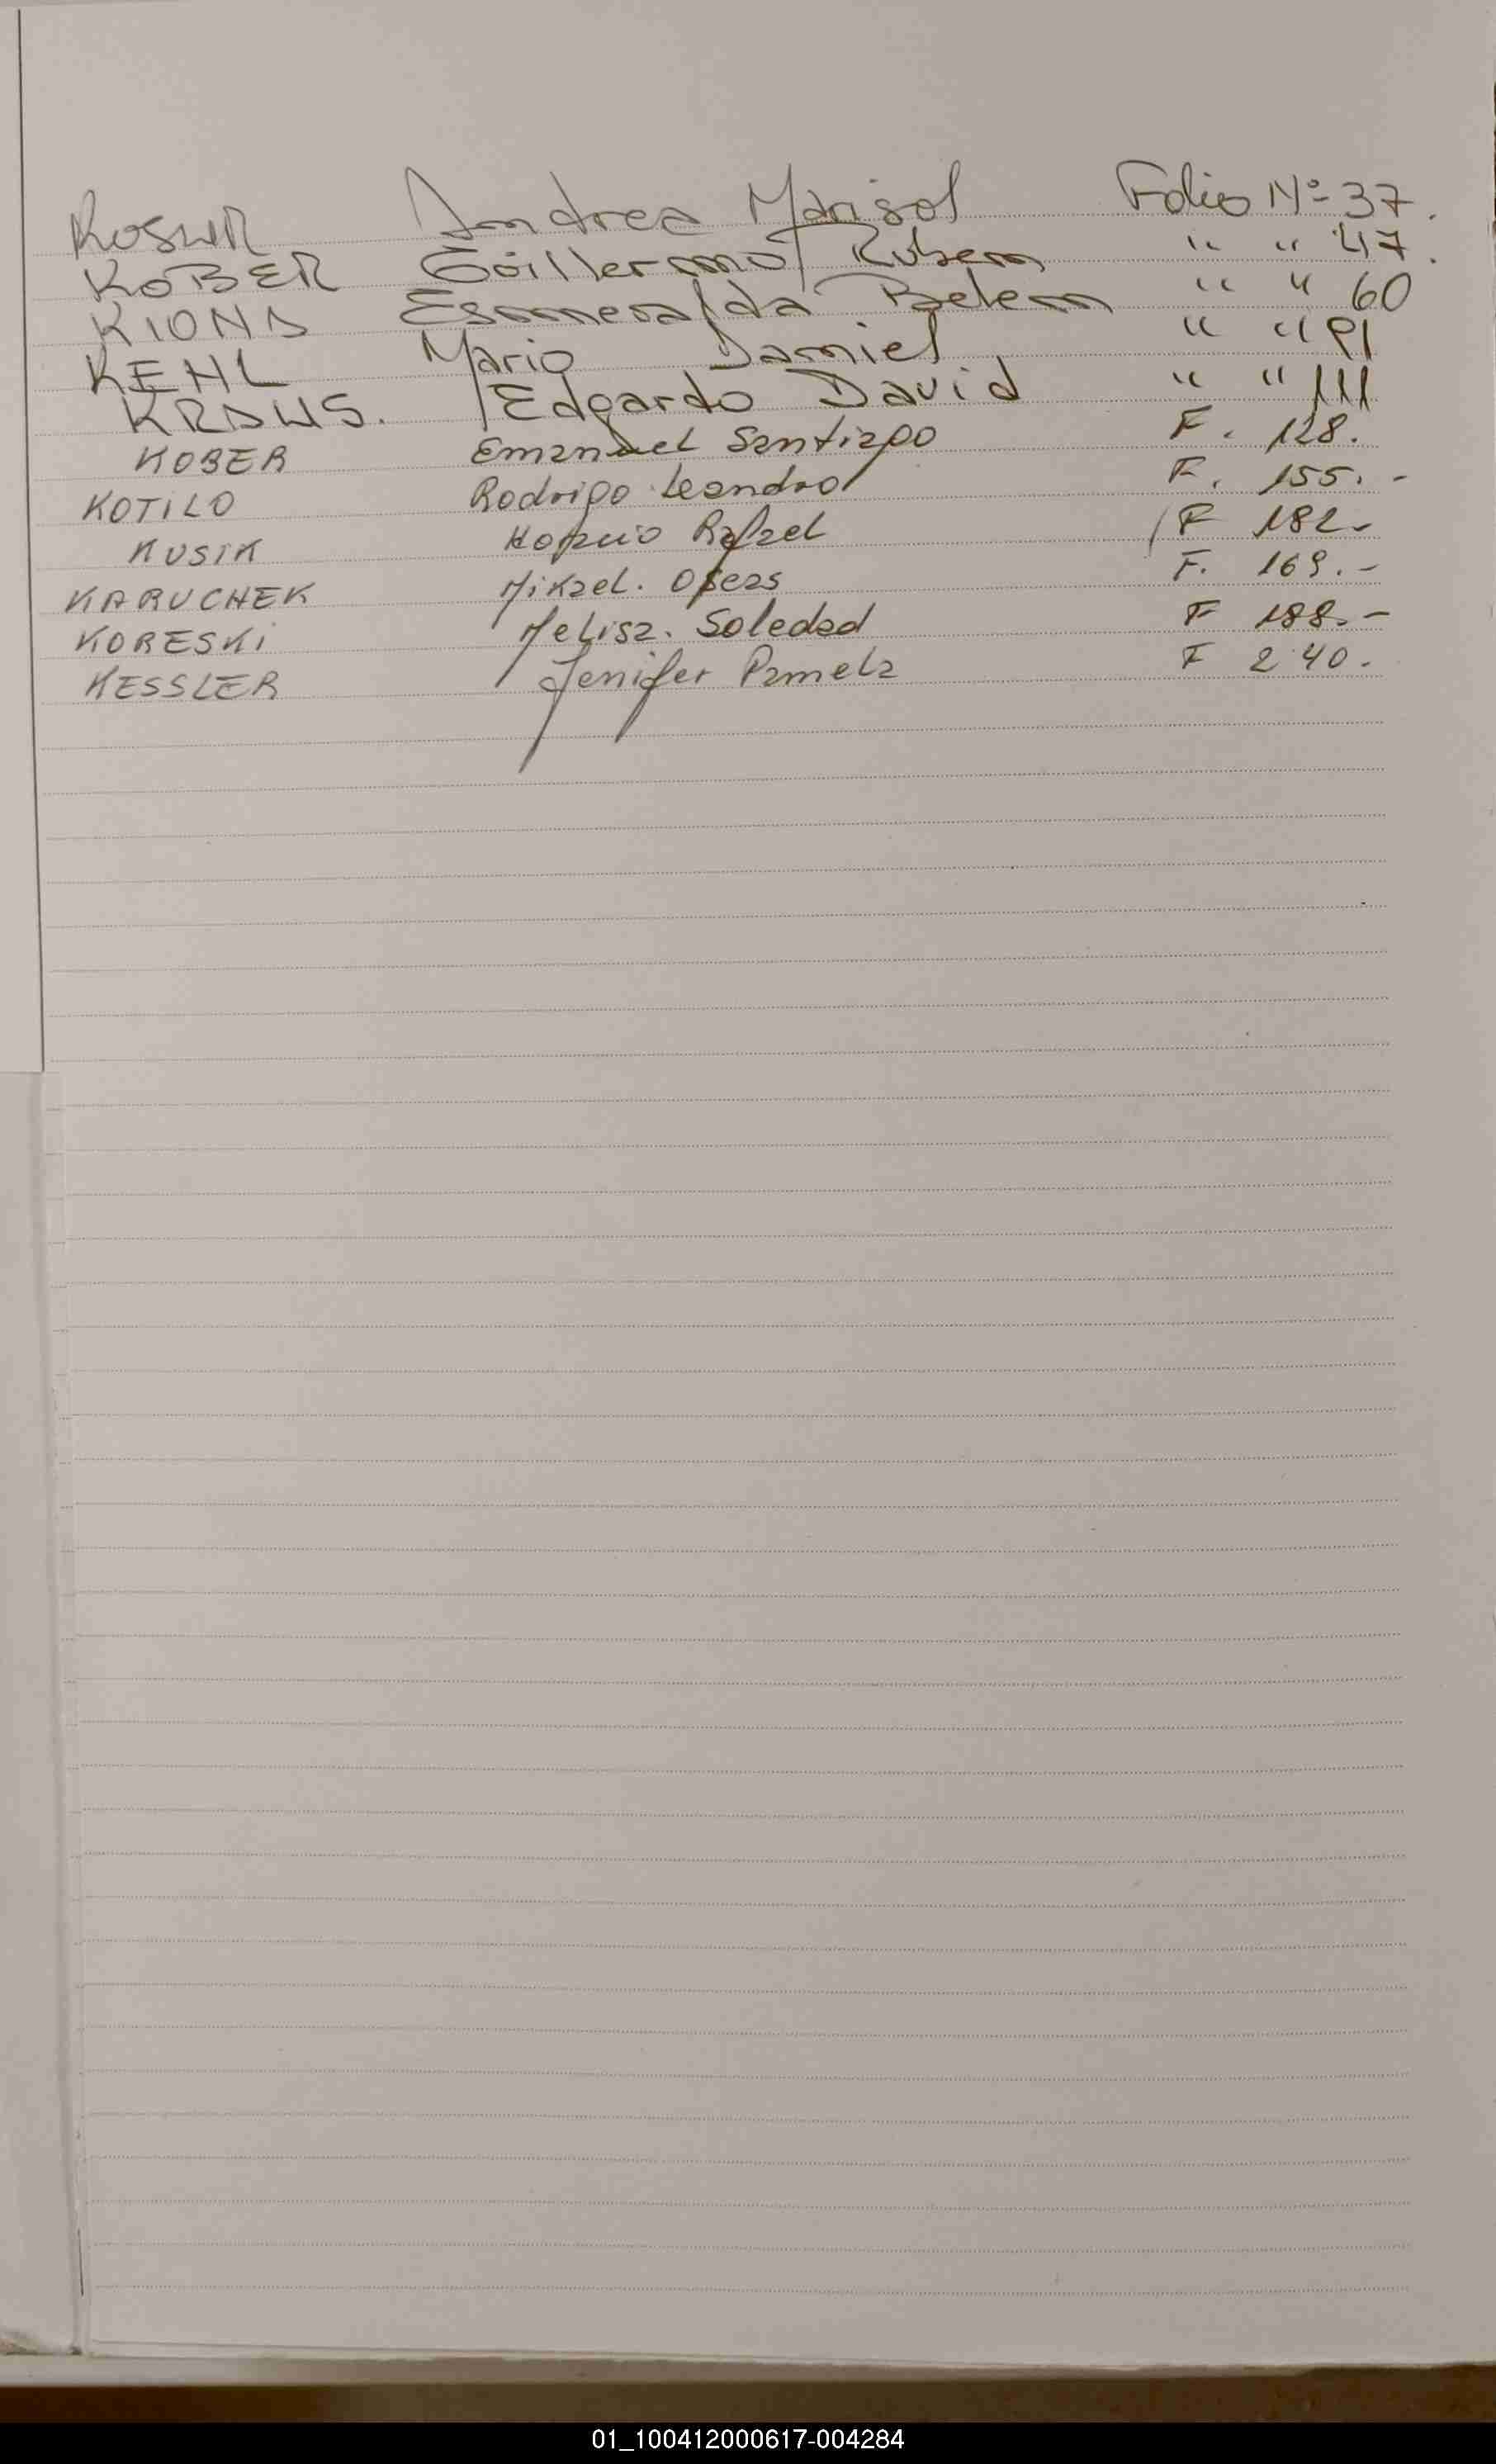 KOSUR Andrea Marisol Folio Nº 37.
KOBER Guillermo Ruben " " 47.
KIONA Esmeralda Belem " " 60
KEHL Mario Daniel " " 91
KRAUS. Edgardo David " " 111
KOBER Emanuel Santiago F. 128.
KOTILO Rodrigo Leandro F. 155.-
KUSIK Rafael F 182-
KARUCHEK Mikael. F. 169.-
KORESKI Melisa. Soledad F 188.-
KESSLER Jenifer Pamela F 240.
01_100412000617-004284